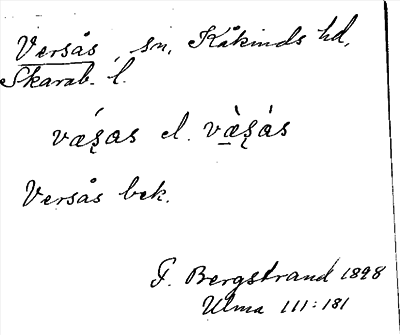 Versås, sn, Kåkinds hd,
Skarab. l.
vǽʂas el. væ̀ʂàs
Versås bek.
F. Bergstrand 1898
Ulma 111:181